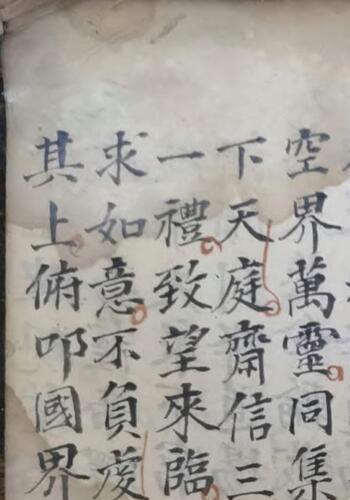 空界萬靈同集
下天庭齋信三
一禮致望來臨
求如意不負虔
其上俯叩國界